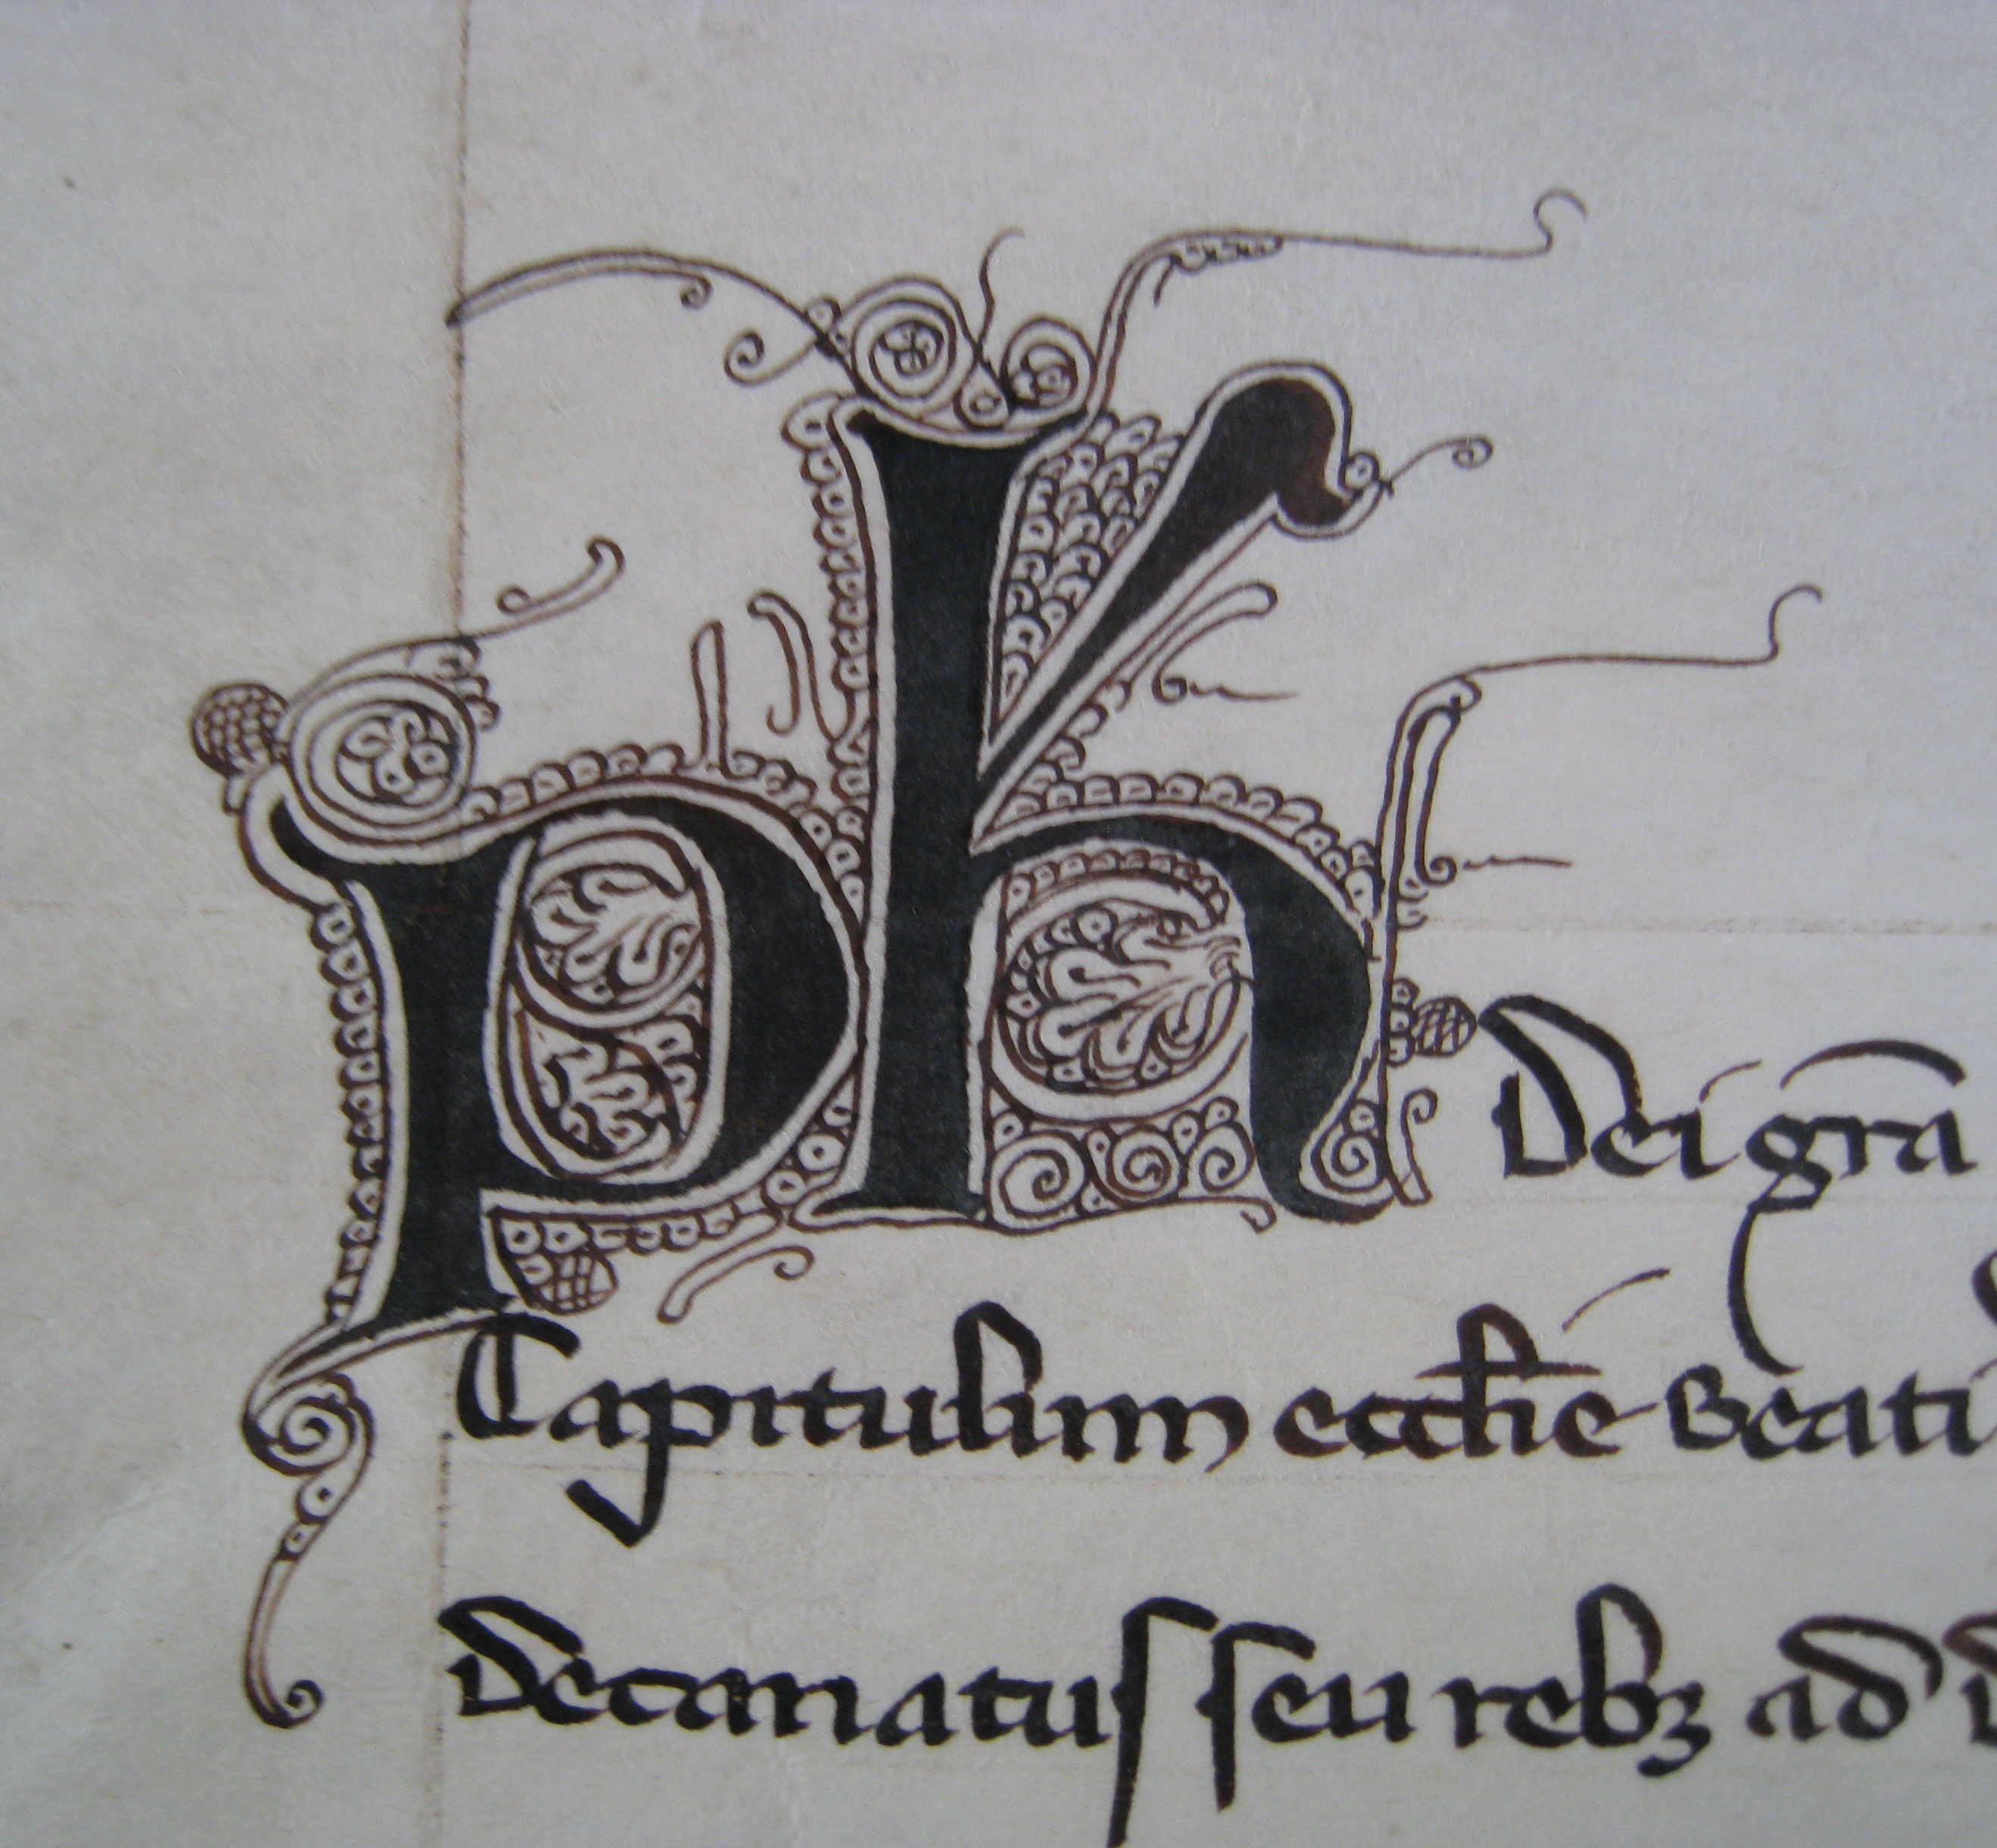 Ph Dei gr̄a
Capitulum eccl̄ie Beati
Decanatus seu rebꝫ ad